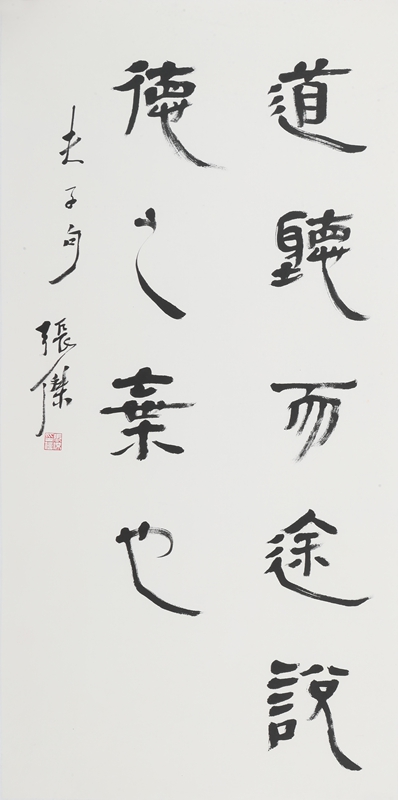 道聽而途說
德之棄也
夫子句 張傑